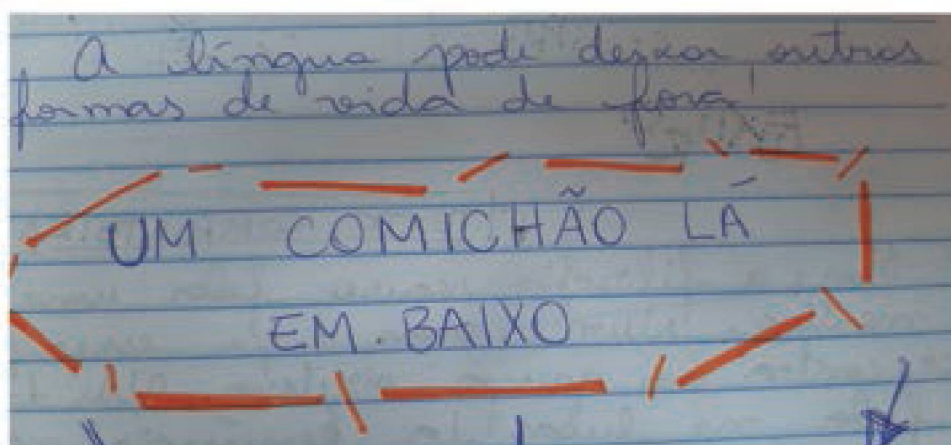 A língua pode deixar outras
formas de vida de fora!
UM COMICHÃO LÁ
EM. BAIXO